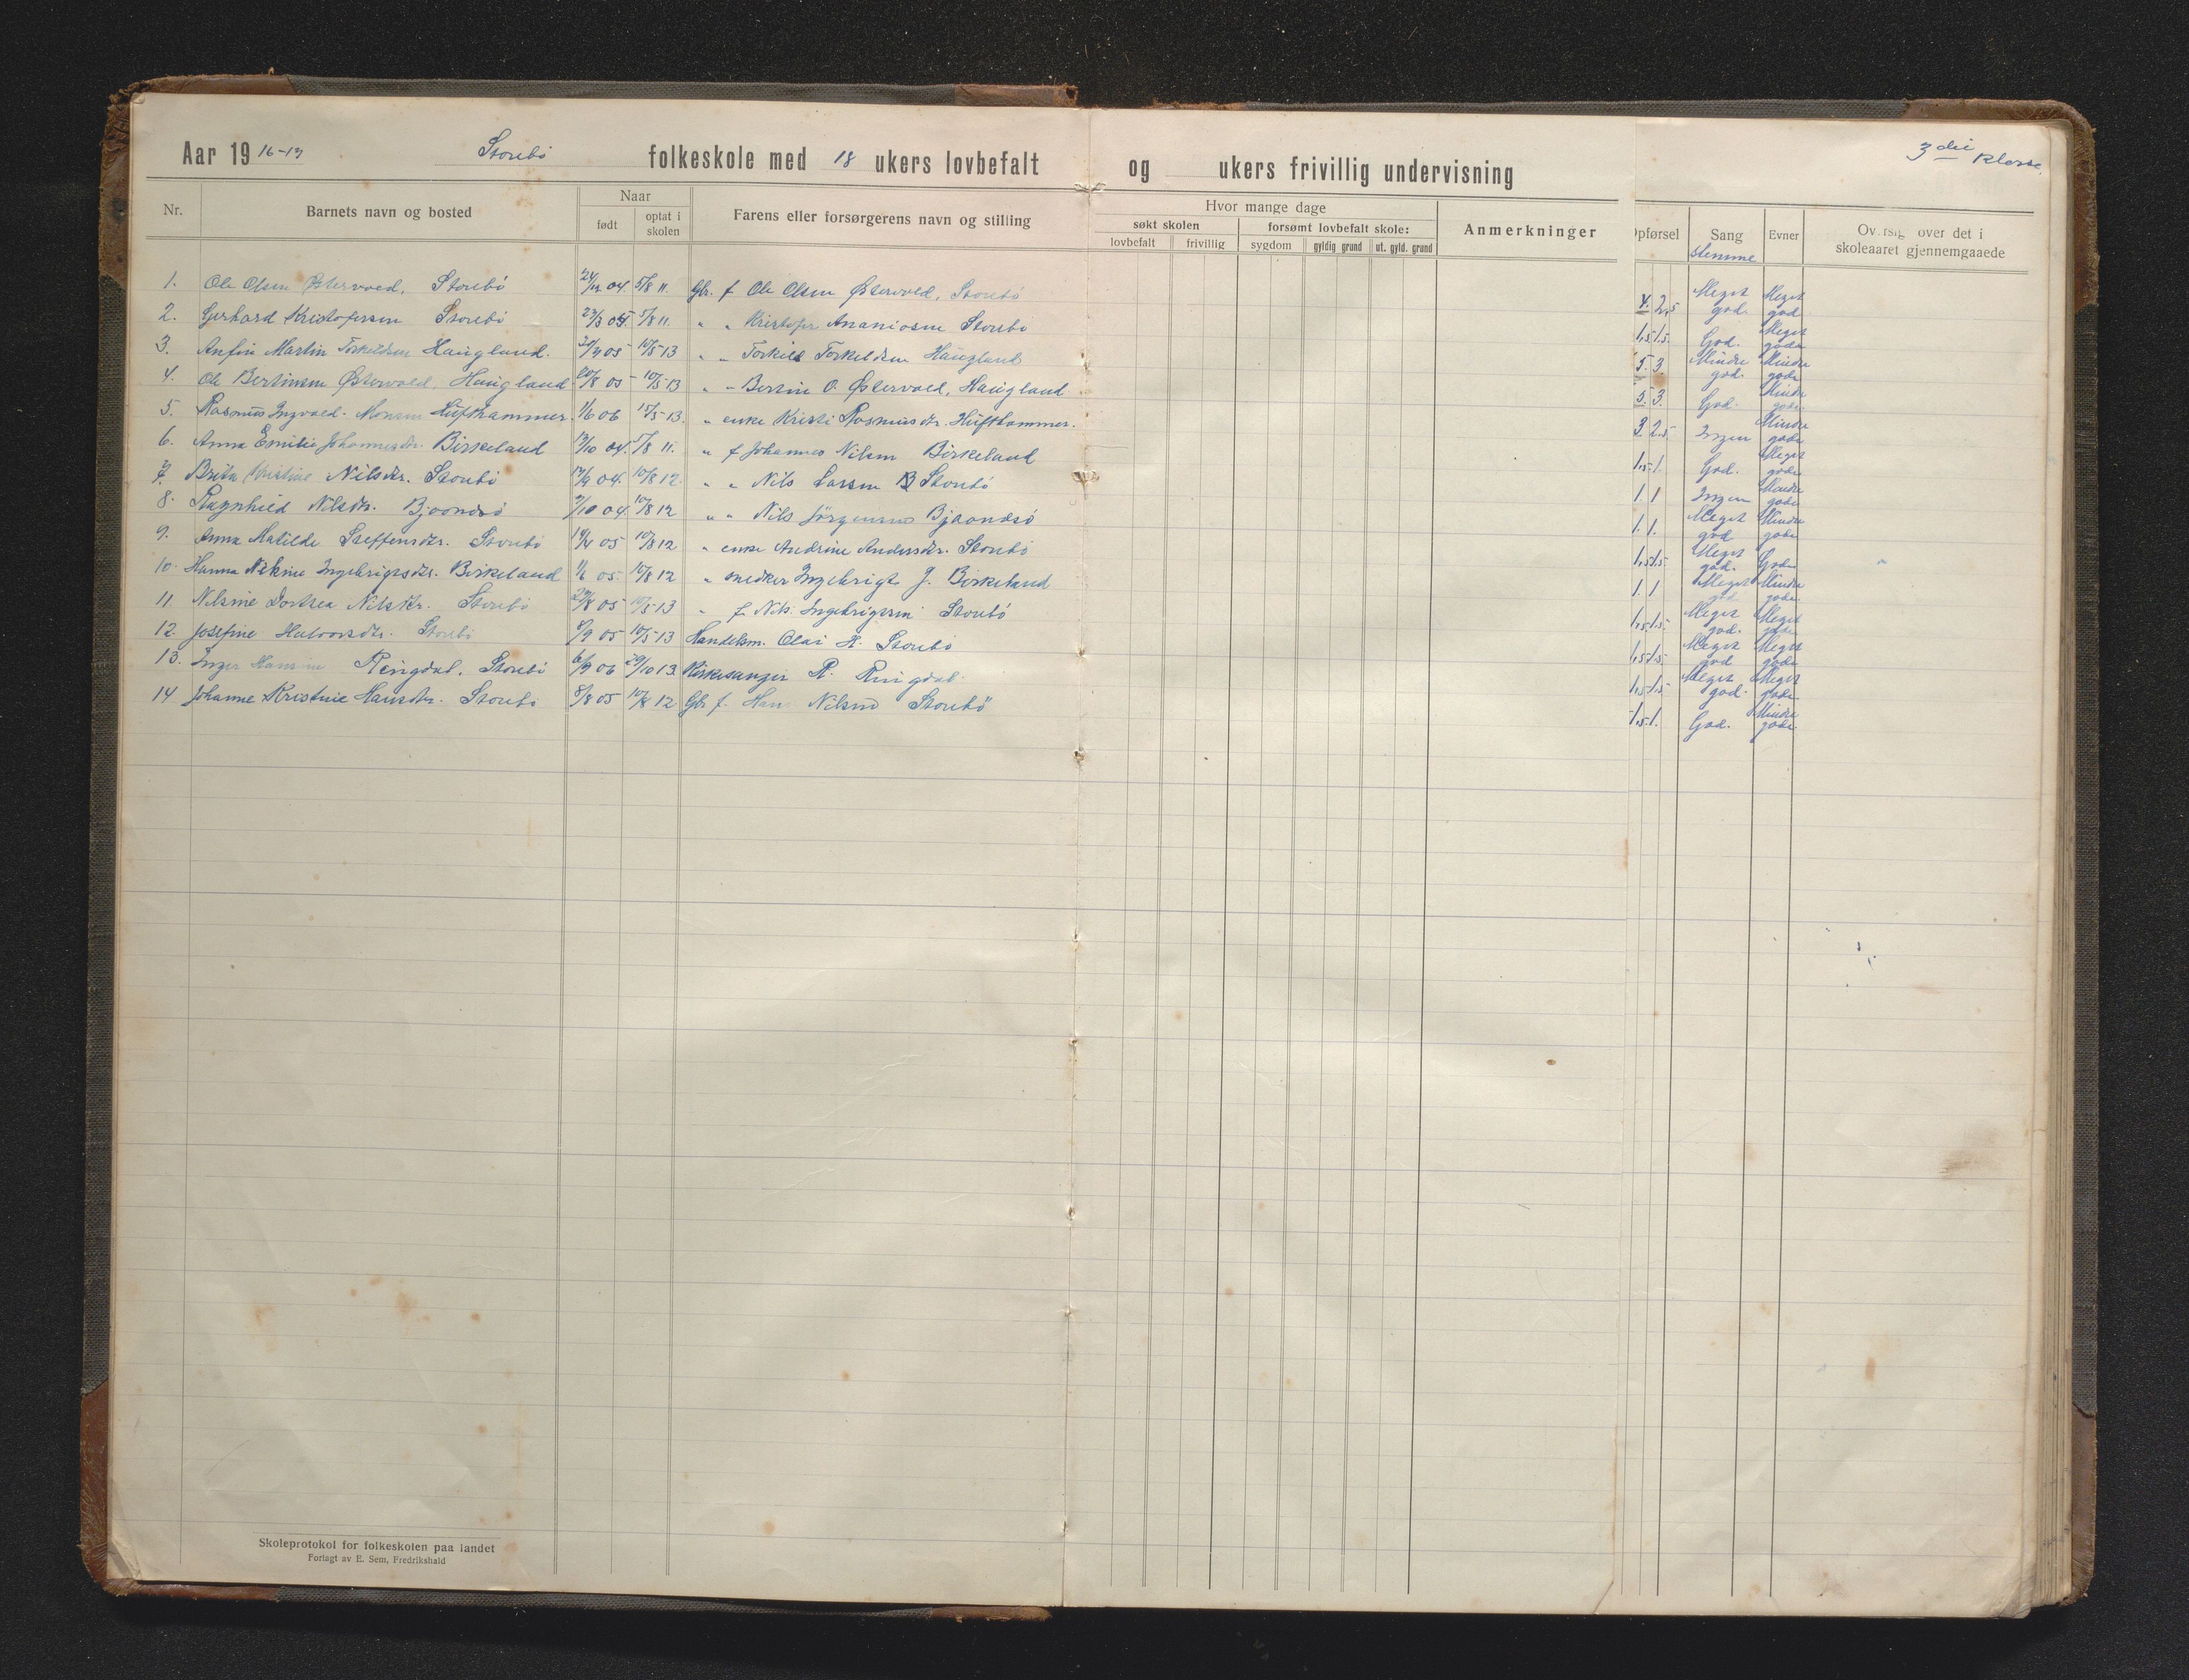 Aar 1916-17 Storebö folkeskole med 18 ukers lovbefalt og ukers frivillig undervisning 3die klasse.
Nr. Barnets navn og bosted Naar født optat i skolen Farens eller forsørgerens navn og stilling Hvor mange dage søkt skolen lovbefalt frivillig forsømt lovbefalt skole: sygdom gyldig grund ut. gyld. grund Anmerkninger Opførsel Sang stemme Evner Oversigt over det i skoleaaret gjennemgaaede
1. Ole Olsen Östervold, Storebö 24/12 04. 5/8 11. Gbr. f Ole Olsen Østervold, Storebö 4. 2,5 Meget god Meget god
2. Gerhard Kristofersen Storebö 23/3 05. 5/8 11. " " Kristofer Ananiasen Storebö 1,5 1,5. God. Meget gode
3. Anfin Martin Torkildsen Haugland. 05 10/5 13 " " Torkild Torkeldsen Haugland 5. 3. Mindre god. Mindre gode
4. Ole Bertinsen Østervold, Haugland 20/8 05 10/5 13 " " Bertin O. Østervold, Haugland 5. 3. God. Mindre gode
5. Rasmus Ingvald. Monsen Hufthammer. 1/6 06 15/5 13. " enke Kristi Rasmusdtr. Hufthammer. 3. 2,5. Ingen Mindre gode
6. Anna Emilie Johannesdtr. Birkeland 13/10 04. 5/8 11. " f Johannes Nilsen Birkeland 1,5 1. God. Meget gode
7. Brita Kristine Nilsdtr. Storebö 17/9 04. 10/8 12 " " Nils Larsen Storebö 1. 1 Ingen Mindre gode
8. Ragnhild Nilsdtr. Bjaandsö 9/10 04. 10/8 12 " " Nils Jörgensen Bjaandsö 1. 1. Meget god Mindre gode
9. Anna Matilde Steffensdtr. Storebö 19/4 05 10/8 12 " enke Andrine Andersdtr. Storebö 1,5 1,5 Meget god. Gode
10. Hanna Nikine Ingebrigtsdtr. Birkeland 1/6 05. 10/8 12 " snedker Ingebrigt J. Birkeland 1. 1 Meget god Mindre gode
11. Nilsine Dortea Nilsdtr. Storebö 29/8 05 10/5 13 " f. Nils Ingebrigtsen Storebö 1,5 1,5. Meget god. Meget gode
12. Josefine Halvorsdtr. Storebö 8/9 05 10/5 13 Handelsm. Olai H. Storebö 1,5 1,5 Meget god Meget gode
13. Inger Hansine Ringdal. Storebö 6/9 06 20/10 13. Kirkesanger R. Ringdal. 1,5 1,5 Meget god. Meget gode
14 Johanne Kristine Hansdtr. Storebö 8/8 05 10/8 12 Gbr f. Hans Nilsen Storebö 1,5 1. God. Mindre gode
Skoleprotokol for folkeskolen paa landet
Forlagt av E. Sem, Fredrikshald